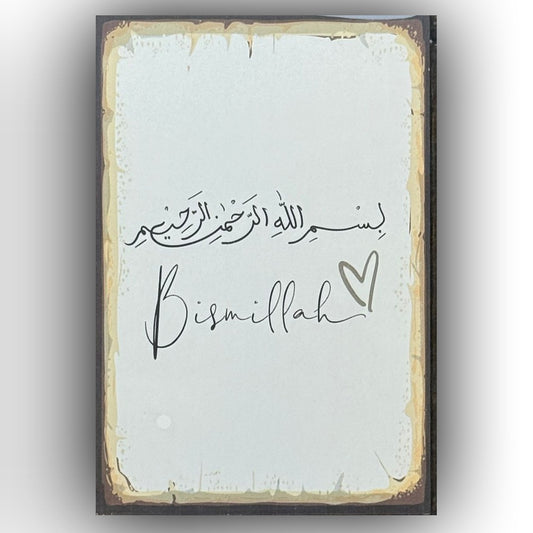 بِسْمِ اللهِ الرَّحْمٰنِ الرَّحِيْمِ
Bismillah